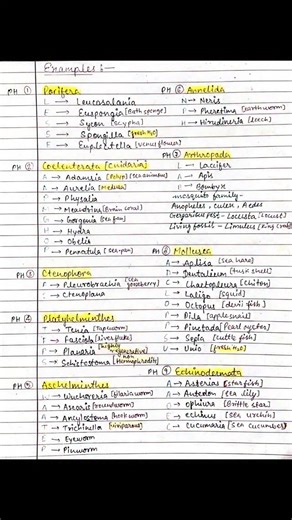 Examples:-
PH ① Porifera
L → Leucosolania
E → Euspongia [Bath sponge]
S → Sycon [scypha]
S → Spongilla [fresh H2O]
E → Euplectella [Venus flower]
PH ② Coelenterata [Cnidaria]
A → Adamsia [Polyp] [Sea anemone]
A → Aurelia [Medusa]
P → Physalia
M → Meandrina [Brain coral]
G → Gorgonia [Sea fan]
H → Hydra
O → Obelia
P → Pennatula [Sea-pen]
PH ③ Ctenophora
P → Pleurobrachia [Sea gooseberry]
C → Ctenoplana
PH ④ Platyhelminthes
T → Tenia [Tapeworm]
F → Fasciola [liver fluke]
P → Planaria [highly regenerative]
S → Schistosoma [non Hermaphrodite]
PH ⑤ Aschelminthes
W → Wuchereria [filaria worm]
A → Ascaris [roundworm]
A → Ancylostoma [hookworm]
T → Trichinella [viviparous]
E → Eyeworm
P → Pinworm
PH ⑥ Annelida
N → Neris
P → Pheretima [earthworm]
H → Hirudineria [leech]
PH ⑦ Arthropoda
L → Laccifer
A → Apis
B → Bombyx
mosquito family-
Anopheles, culex, Aedes
Gregarious pest - Locusta [Locust]
Living fossils - Limulus [King crab]
PH ⑧ Mollusca
A → Aplysa [Sea hare]
D → Dentalium [tusk shell]
C → Chaetopleura [chiton]
L → Laligo [squid]
O → Octopus [devil fish]
P → Pila [apple snail]
P → Pinctada [Pearl oyster]
S → Sepia [cuttle fish]
U → Unio [fresh H2O]
PH ⑨ Echinodermata
A → Asterias [star fish]
A → Antedon [sea lily]
O → Ophiura [Brittle star]
E → echinus [sea urchin]
C → cucumaria [sea cucumber]